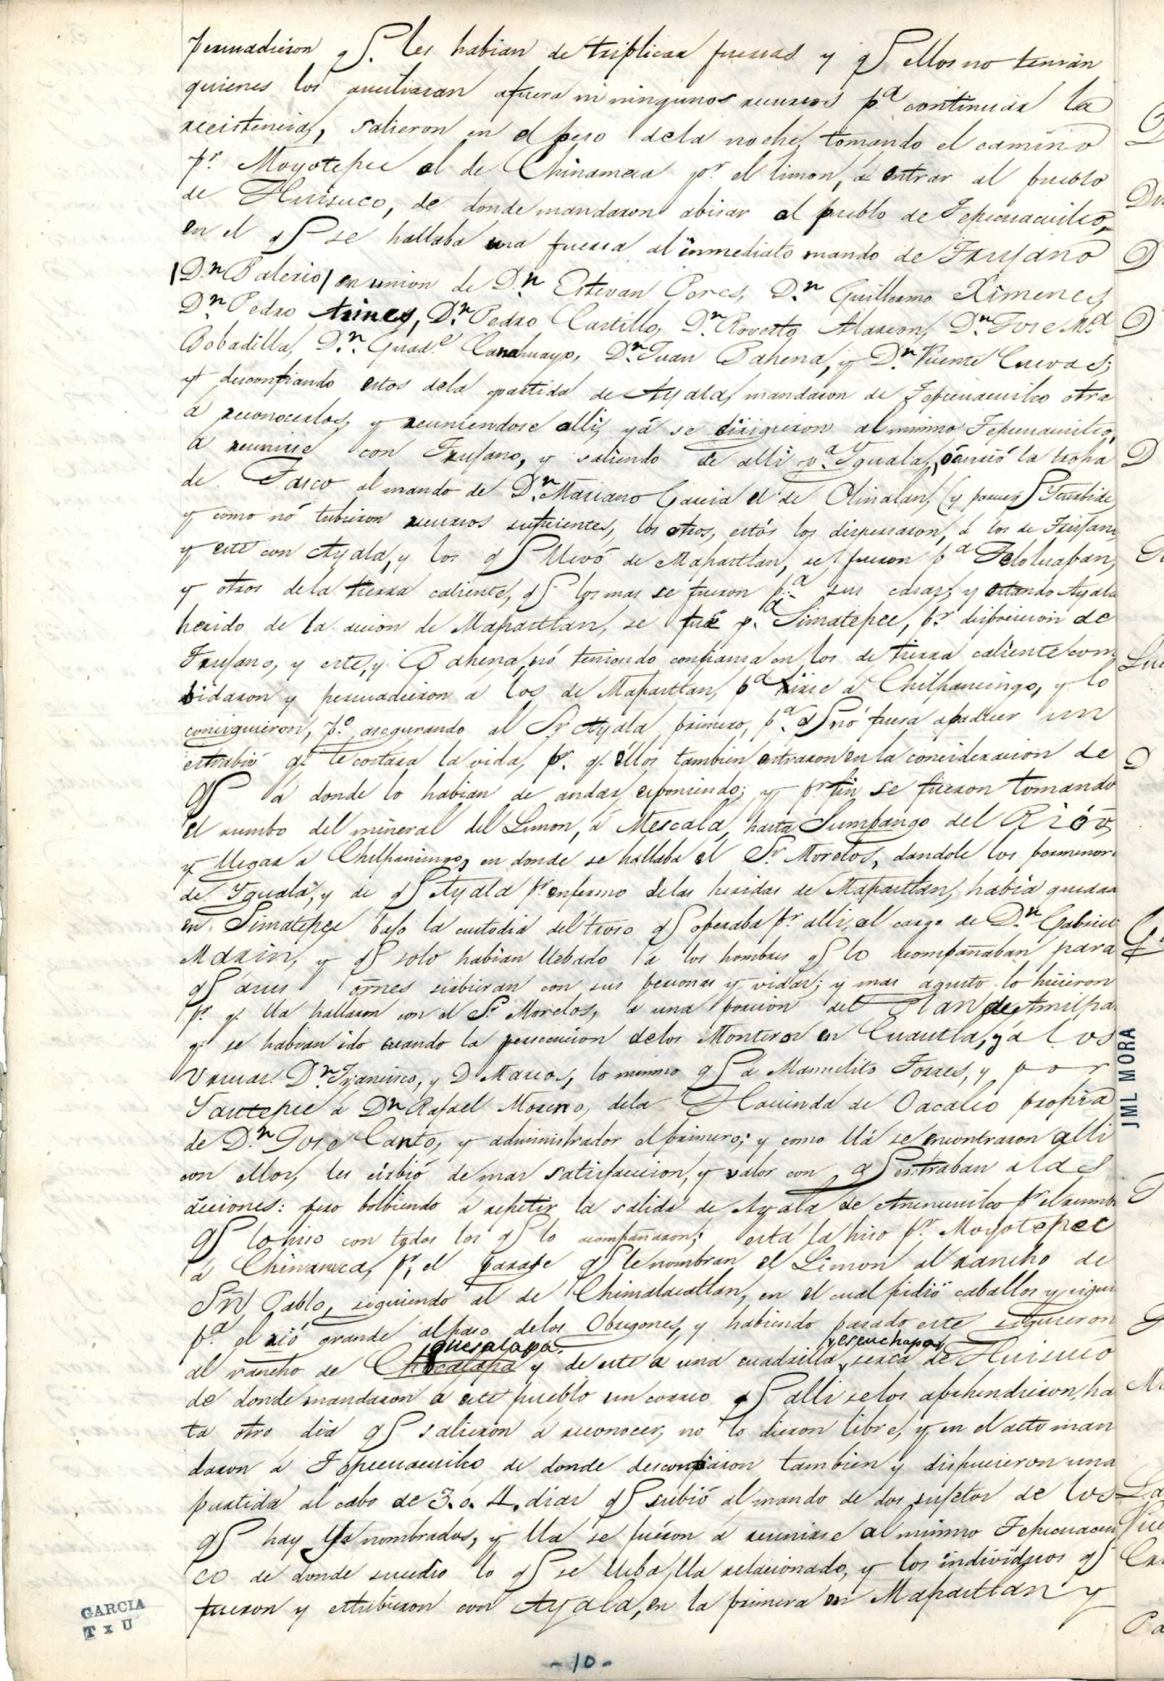 persuadieron qS. les habian de triplicar fuerzas y qS ellos no tenian
quienes los ausiliaran afuera ni ningunos recursos pa continuar la
recistencia, salieron en el peso de la noche, tomando el camino
pr. Moyotepec al de Chinameca pr. el limon, á entrar al pueblo
de Huisuco, de donde mandaron abisar al pueblo de Tepecuacuilco,
en el qS se hallaba una fuersa al inmediato mando de Trujano
(Dn Balerio) en union de Dn. Estevan Peres, Dn. Guillermo Ximenes,
Dn Pedro Dn. Pedro Castillo, Dn. Rovetto Alarcon, Dn. Jose Ma
Bobadilla, Dn. Guade Canahuayo, Dn. Juan Bahena, y Dn. Vicente Cuevas;
y desconfiando estos dela partida de Ayala, mandaron de Tepecuacuilco otra
á reconocerlos, y reuniendose alli, yá se dirigieron al mismo Tepecuacuilco,
á reunirse con Trujano, y saliendo de alli pa. Yguala, ócurrió la tropa
de Tasco al mando de Dn. Mariano Garcia el de Olinalan, (y
y como nó tubieron recursos suficientes, los otros, estós los dispersaron, á los de Trujano
y este con Ayala, y los qS llevó de Mapastlan, se fueron pa Teloluapan,
y otros de la tierra caliente, qS los mas se fueron pa. sus casas; y estando Ayala
herido de la acion de Mapastlan, se fué pa. Simatepec, pr. disposicion de
Trujano, y este, y Bahena, nó teniendo confiansa en los de tierra caliente com
bidaron y persuadieron á los de Mapastlan, pa irse á Chilpancingo, y lo
consiguieron, po. asegurando al Sr Ayala primero, pa. qS nó fuera apadecer un
estrabió qe le costara la vida, pr. qe. ellos tambien entraron en la concideracion de
qS á donde lo habian de andar esponiendo; y pr fin se fueron tomando
el rumbo del mineral del Limon, á Mescala, hasta Sumpango del Rió
y llegar á Chilpancingo, en donde se hallaba el Sr. Morelos, dandole los pormenores
de Yguala, y de qS Ayala pr enfermo de las heridas de Mapastlan, habia quedado
en Simatepec bajo la custodia del troso qS operaba pr alli, al cargo de Dn Gabriel
Marin, y qS solo habian llebado á los hombres qS lo acompañaban para
qS asies sirbieran con sus personas y vidas; y mas agusto lo hisieron
pr. qe. lla hallaron con el Sr Morelos, á una porcion del Plan de Amilpas
qe se habian ido cuando la persecucion delos Monteros en Cuautla, y á los
Vargas Dn. Francisco, y D Marcos, lo mismo qS á Manuelito Torres, y por
Yautepec á Dn Rafael Moreno, dela Hacienda de Oacalco propia
de Dn Jose Canto, y administrador el primero; y como llá se encontraron alli
con ellos, les sirbió de mas satisfaccion, y valor con qS entraban alas
acciones: pero bolbiendo á repetir la salida de Ayala de Anenecuilco pr el rumbo
qS lo hiso con todos los qS lo acompañaron; esta la hiso pr. Moyotepec
á Chinameca, pr. el parage qS le nombran el Limon al rancho de
Sn Pablo, siguiendo al de Chimalacatlan, en el cual pidió caballos y siguió
pa. el rió grande al paso delos Obregones, y habiendo pasado este siguieron
quesalapa. y escuchapa
al rancho de Chocalapa y de este á una cuadrilla serca de Huisuco
de donde mandaron á este pueblo un correo qS alli selos aprehendieron, has
ta otro dia qS salieron á reconocer, no lo dieron libre, y en el acto man
daron á Tepecuacuilco de donde desconfiaron tambien y dispucieron una
partida al cabo de 3. ó. 4. dias qS subió al mando de dos sujetos de los
qS hay Ya nombrados, y lla se fueron á reunirse al mismo Tepecuacuil
co de donde sucedio lo qS se lleba lla relacionado, y los individuos qS
fueron y estubieron con Ayala, en la primera en Mapastlan y
JML MORA
GARCIA
T x U
-10-